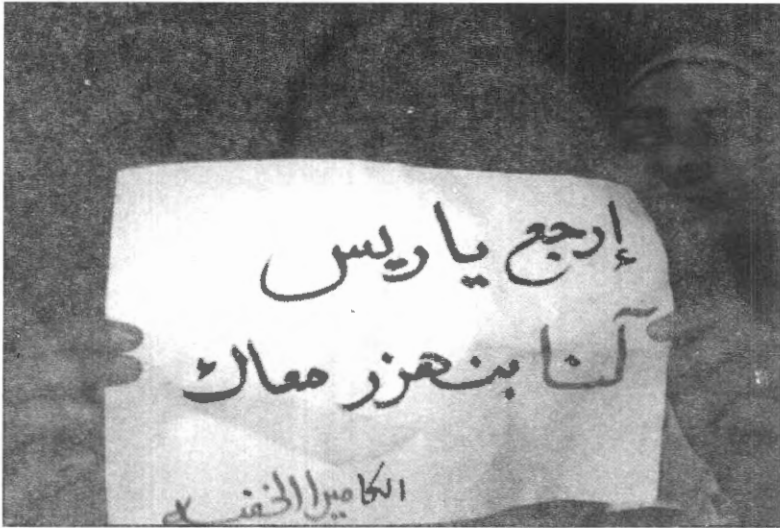 إرجع يا ريس
كنا بنهزر معاك
الكاميرا الخفيه